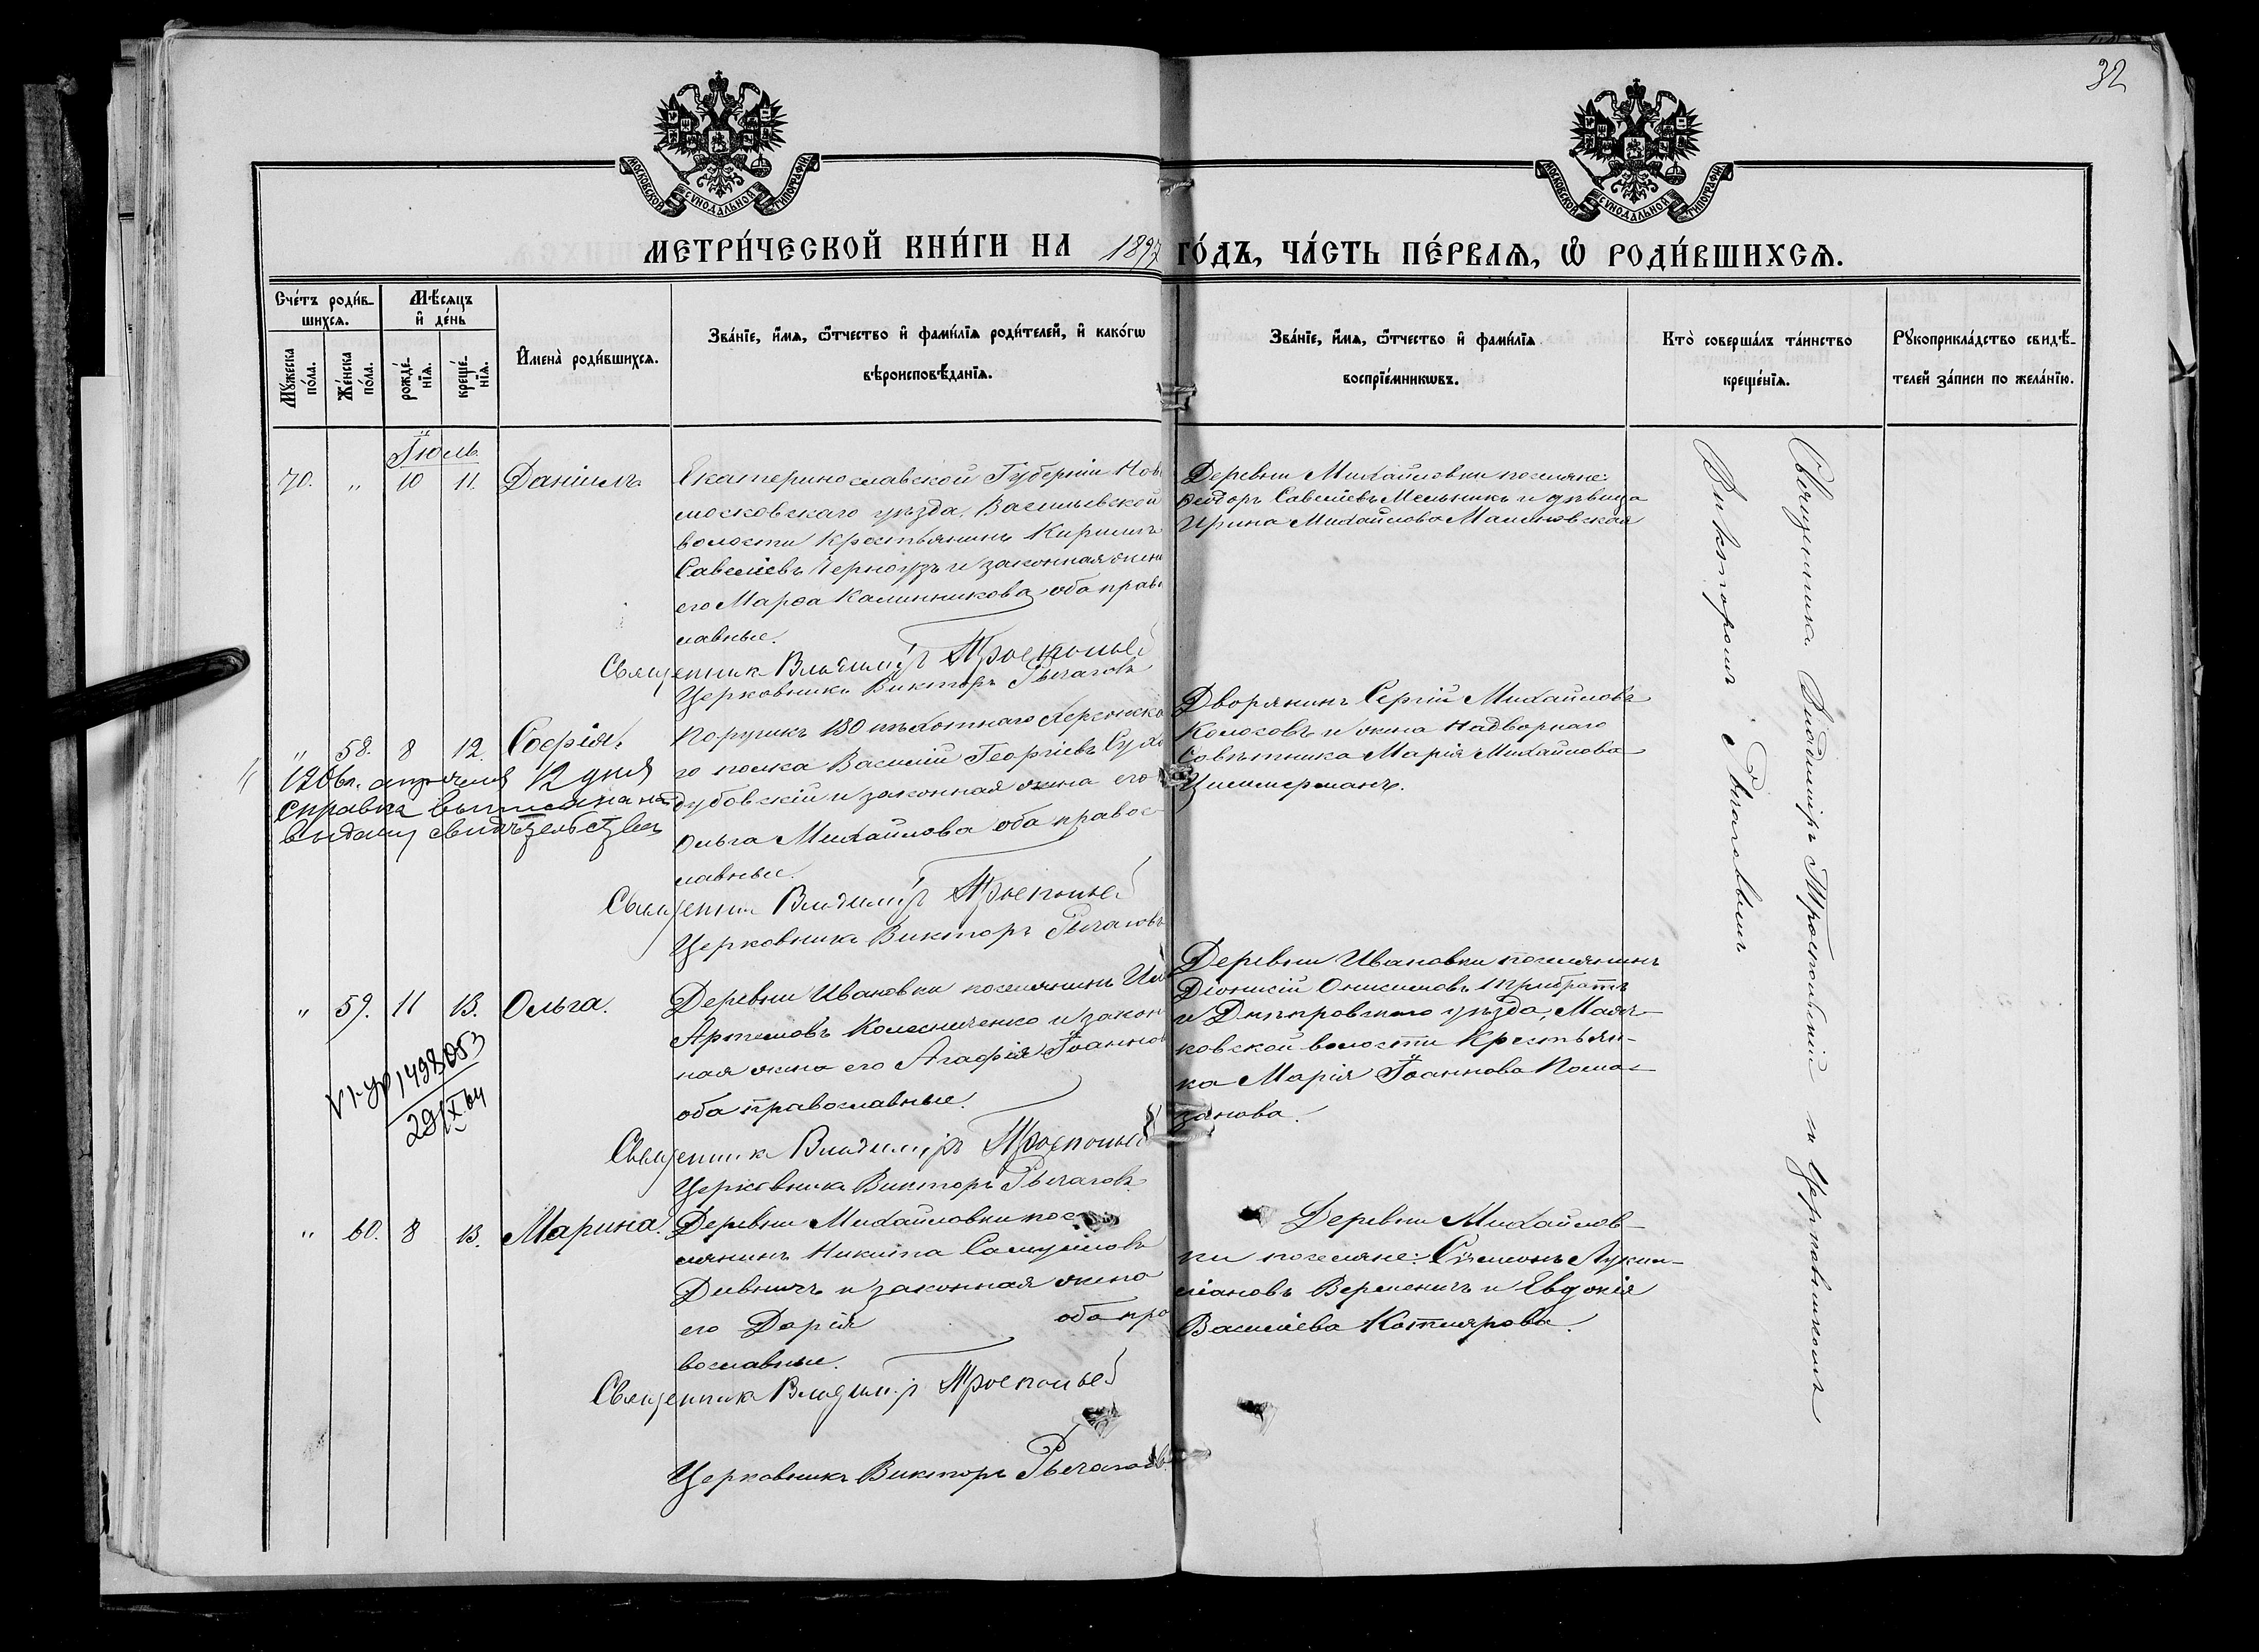 32
МОСКОВСКОЙ СУНОДАЛЬНОЙ ТИПОГРАФІИ
МОСКОВСКОЙ СУНОДАЛЬНОЙ ТИПОГРАФІИ
МЕТРИ́ЧЕСКОЙ КНИ́ГИ НА 1897 ГО́ДЪ, ЧА́СТЬ ПЕ́РВАѦ, Ѡ РОДИ́ВШИХСѦ.
Сче́тъ роди́в-
шихсѧ.
Мѣ́сѧцъ
и де́нь
Мꙋ́жеска
по́ла.
Же́нска
по́ла.
рожде́-
нїѧ.
креще́-
нїѧ.
Имена̀ роди́вшихсѧ.
Зва́нїе, и́мѧ, ѻ́тчество и фами́лїѧ роди́телей, и како́гѡ
вѣроисповѣ́данїѧ.
Зва́нїе, и́мѧ, ѻ́тчество и фами́лїѧ
воспрїе́мникѡвъ.
Кто̀ соверша́лъ та́инство
креще́нїѧ.
Рꙋкоприкла́дство свидѣ́-
телей за́писи по жела́нїю.
Іюль
70. " 10 11. Даніилъ
Екатеринославской Губерніи Ново
московскаго уѣзда, Васильевской
волости Крестьянинъ Кириллъ
Савеліевъ Черногузъ и законная жена
его Марѳа Калинникова оба право
лавные.
Священникъ Владиміръ Троепольскій
Церковникъ Викторъ Рычаговъ
Деревни Михайловки поселяне:
Ѳеодоръ Савеліевъ Мельникъ и дѣвица
Ирина Михайлова Малиновская
" 58. 8 12. Софія.
справка выписана на
выдачу свидѣтельства
Поручикъ 130 пѣхотнаго Херсонска
го полка Василій Георгіевъ Сухо
дубовскій и законная жена его
Ольга Михайлова оба правос-
лавные.
Священникъ Владиміръ Троепольскій
Церковникъ Викторъ Рычаговъ
Дворянинъ Сергій Михайловъ
Колосовъ и жена Надворнаго
Совѣтника Марія Михайлова
Циммерманъ.
" 59. 11 13. Ольга.
1498053
29/X 64
Деревни Ивановки поселянинъ
Артемовъ Колесниченко и закон
ная жена его Агафія Іоаннова
оба православные.
Священникъ Владиміръ Троепольскій
Церковникъ Викторъ Рычаговъ
Деревни Ивановки поселянинъ
Діонисій Онисимовъ
и Днѣпровскаго уѣзда, Маяч-
ковской волости Крестьян-
ка Марія Іоаннова Пома-
занова.
" 60. 8 13. Марина.
Деревни Михайловки посе
лянинъ Никита Самуиловъ
Дивничъ и законная жена
его Дарія оба пра
вославные.
Священникъ Владиміръ Троепольскій
Церковникъ Викторъ Рычаговъ
Деревни Михайлов-
ки поселяне: Симеонъ Луки-
ліановъ Веременичъ и Евдокія
Василіева Котлярова.
Священникъ Владиміръ Троепольскій и Церковникомъ
Викторомъ Рычаговымъ